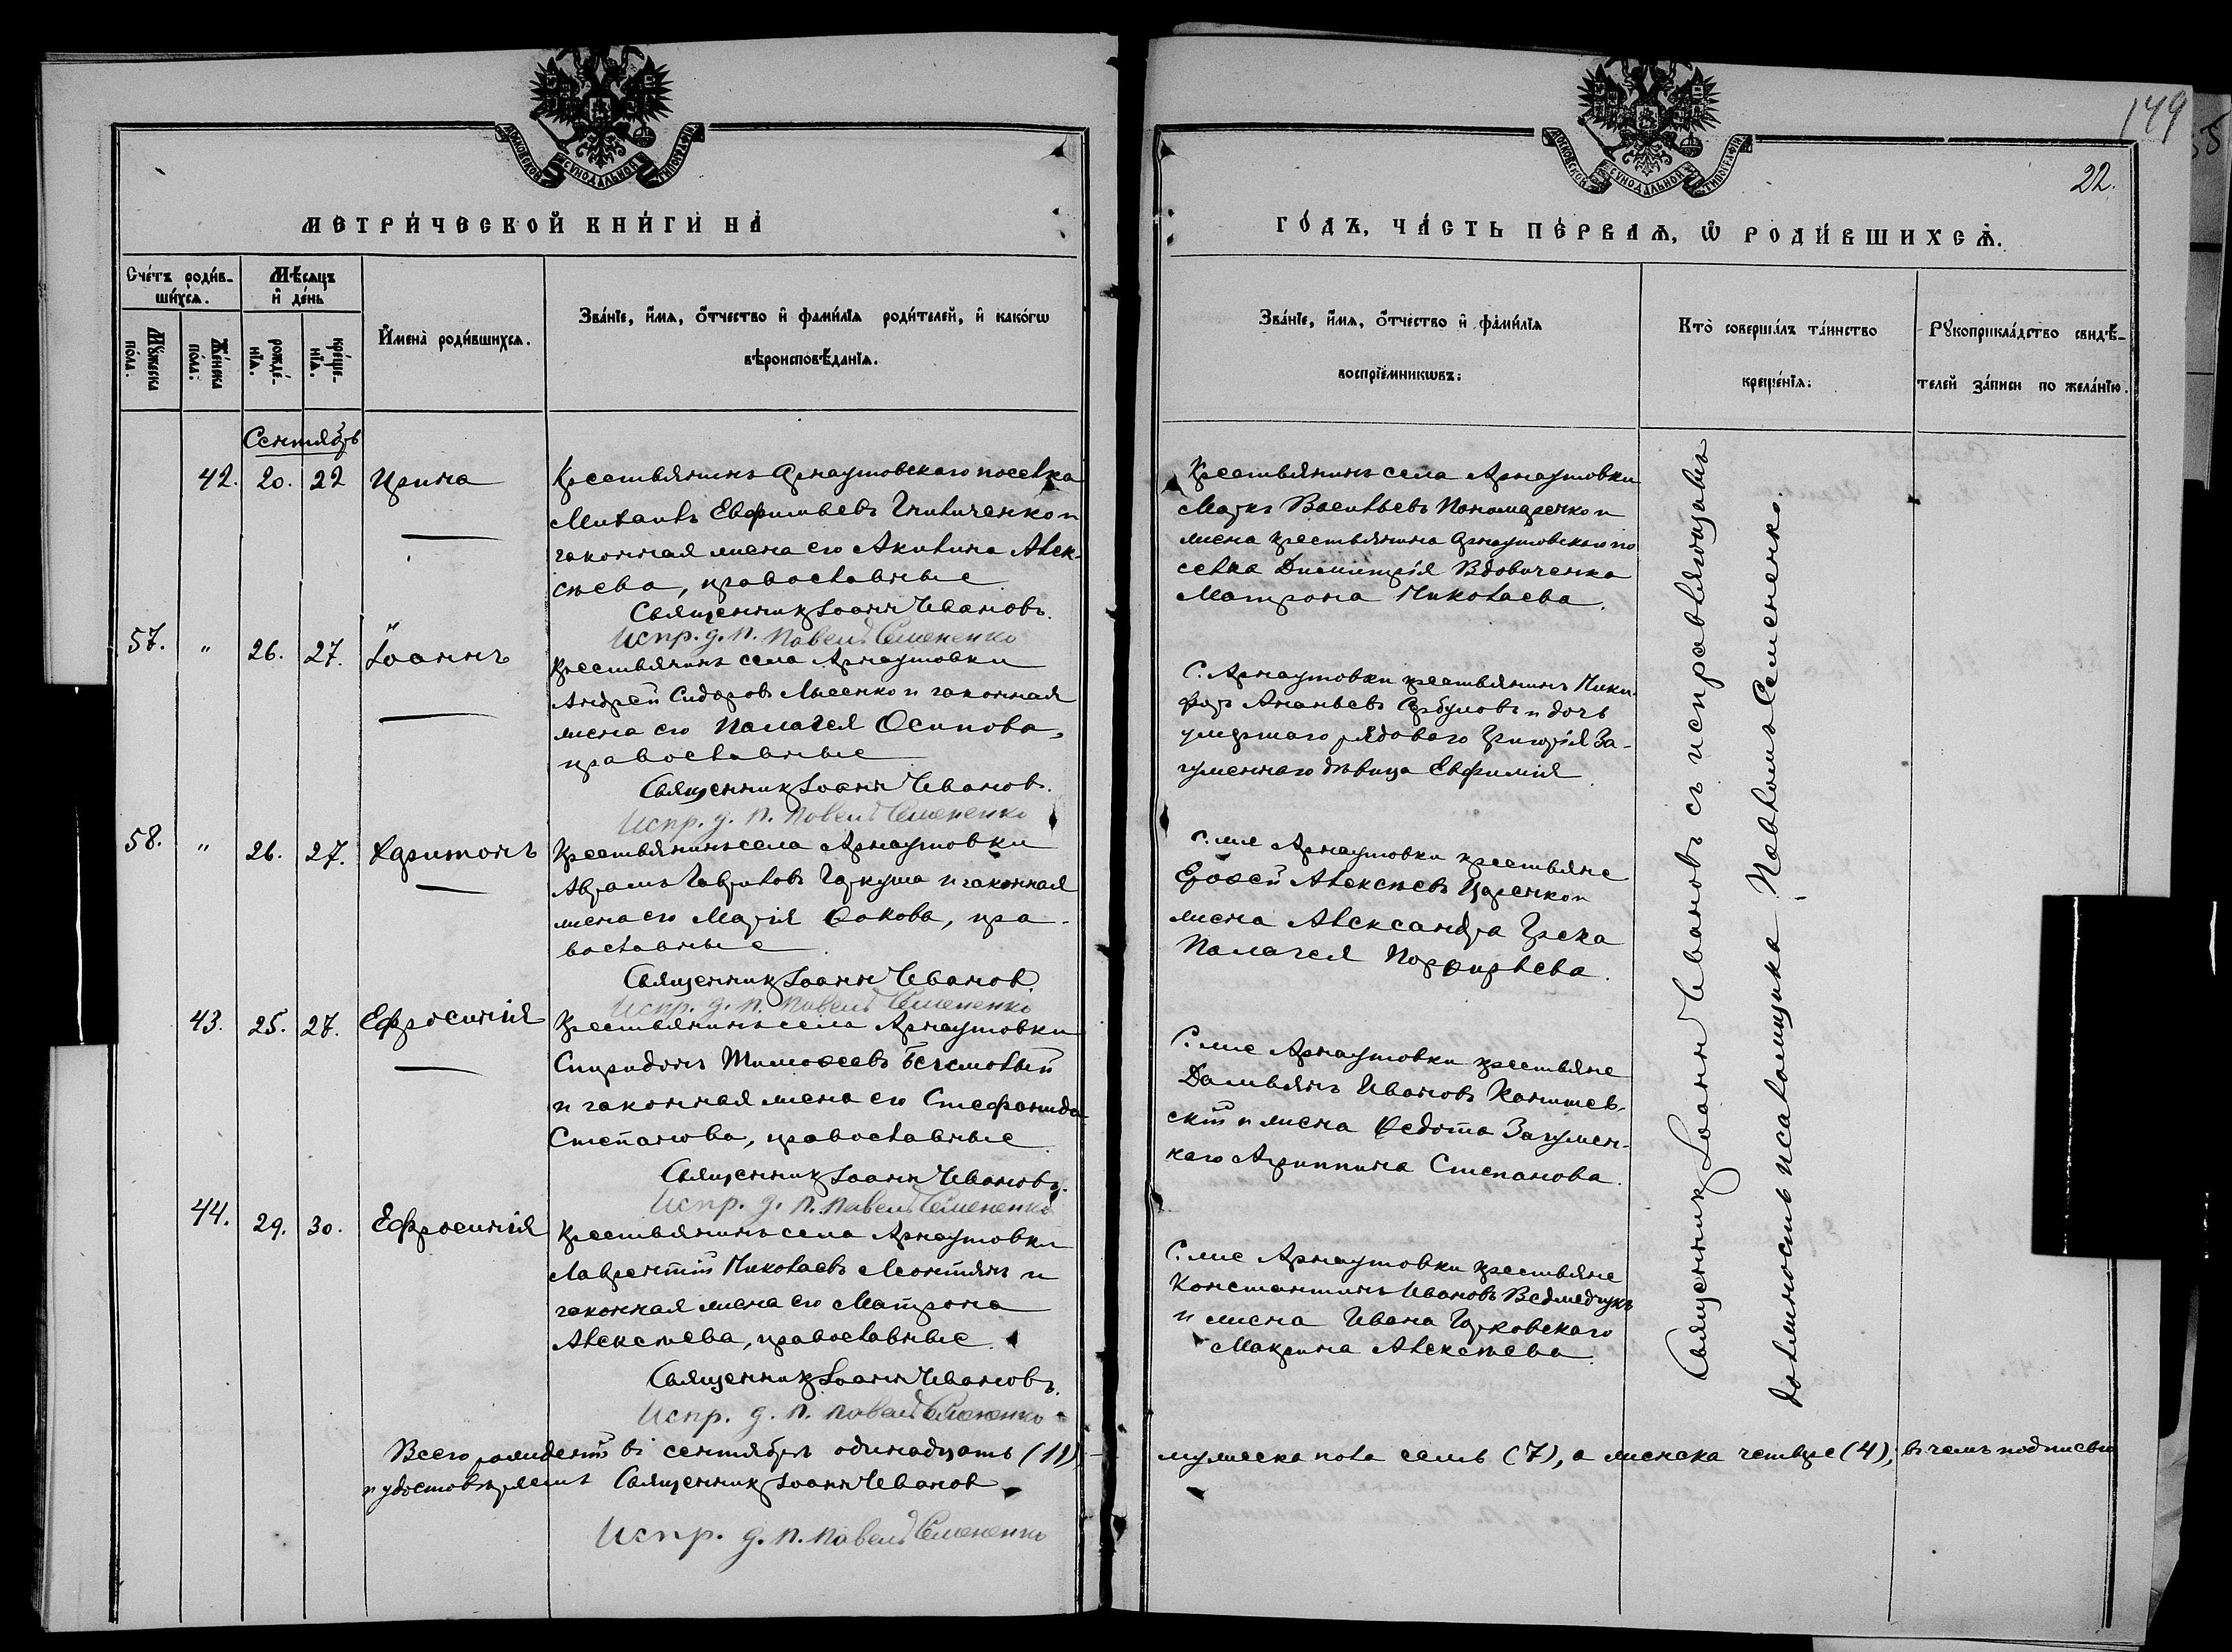 МОСКОВСКОЙ СѴНОДАЛЬНОЙ ТИПОГРАФІИ
МЕТРИ́ЧЕСКОЙ КНИ́ГИ НА̀
Сче́тъ роди́в-
ши́хсѧ.
Мѣ́сѧцъ
и҆ де́нь
Мꙋ́жеска
по́ла.
Же́нска
по́ла.
рожде́-
нїѧ.
креще́-
нїѧ.
И҆мена̀ роди́вшихсѧ.
Зва́нїе, и҆́мѧ, ѻ҆́тчество и҆ фами́лїѧ роди́телей, и҆ како́гѡ
вѣроисповѣ́данїѧ.
Сентябрь
42. 20. 22 Ирина
Крестьянинъ Арнаутовскаго поселка
Михаилъ Евфимьевъ и
законная жена его Акилина Алек-
сѣева, православные
Священникъ Іоаннъ Ивановъ.
Испр. д. п. Павелъ Семененко
57. " 26. 27. Іоаннъ
Крестьянинъ села Арнаутовки
Андрей Сидоровъ Лысенко и законная
жена его Палагея Осипова,
православные
Священникъ Іоаннъ Ивановъ.
Испр. д. п. Павелъ Семененко
58. " 26. 27. Харитонъ
Крестьянинъ села Арнаутовки
Аврамъ Гавриловъ Гаркуша и законная
жена его Марія Ѳокова, пра-
вославные
Священникъ Іоаннъ Ивановъ.
Испр. д. п. Павелъ Семененко
43. 25. 27. Ефросинія
Крестьянинъ села Арнаутовки
Спиридонъ Тимоѳеевъ
и законная жена его Стефанида
Степанова, православные
Священникъ Іоаннъ Ивановъ.
Испр. д. п. Павелъ Семененко
44. 29. 30. Ефросинія
Крестьянинъ села Арнаутовки
Лаврентій Николаевъ Леонтянъ и
законная жена его Матрона
Алексѣева, православные.
Священникъ Іоаннъ Ивановъ.
Испр. д. п. Павелъ Семененко
Всего рожденій въ сентябрѣ одинадцать (11)
и удостовѣряемъ Священникъ Іоаннъ Ивановъ
Испр. д. п. Павелъ Семененко
149
22.
МОСКОВСКОЙ СѴНОДАЛЬНОЙ ТИПОГРАФІИ
ГО́ДЪ, ЧА́СТЬ ПЕ́РВАѦ, Ѡ҆ РОДИ́ВШИХСѦ.
Зва́нїе, и҆́мѧ, ѻ҆́тчество и҆ фами́лїѧ
воспрїе́мникѡвъ.
Кто̀ соверша́лъ та́инство
креще́нїѧ.
Рꙋкоприкла́дство свидѣ́-
телей за́писи по жела́нїю.
Крестьянинъ села Арнаутовки
Маркъ Васильевъ Пономаренко и
жена крестьянина Арнаутовскаго по
селка Димитрія Вдовиченка
Матрона Николаева.
С. Арнаутовки крестьянинъ Ники-
форъ Ананьевъ Арбузовъ и дочь
умершаго рядоваго Григорія За-
гуменнаго дѣвица Евфимія
С. же Арнаутовки крестьяне
Ероѳей Алексѣевъ Царенко и
жена Александра Грека
Палагея Порфирьева.
С. же Арнаутовки крестьяне
Дамьянъ Ивановъ
скій и жена Ѳедота Загумен-
наго Агриппина Степанова.
С. же Арнаутовки крестьяне
Константинъ Ивановъ Ведмедчукъ
и жена Ивана Гарковскаго
Макрина Алексѣева.
Священникъ Іоаннъ Ивановъ съ исправляющимъ
должность псаломщика Павломъ Семененко.
мужеска пола семь (7), а женска четыре (4); въ чемъ подписью